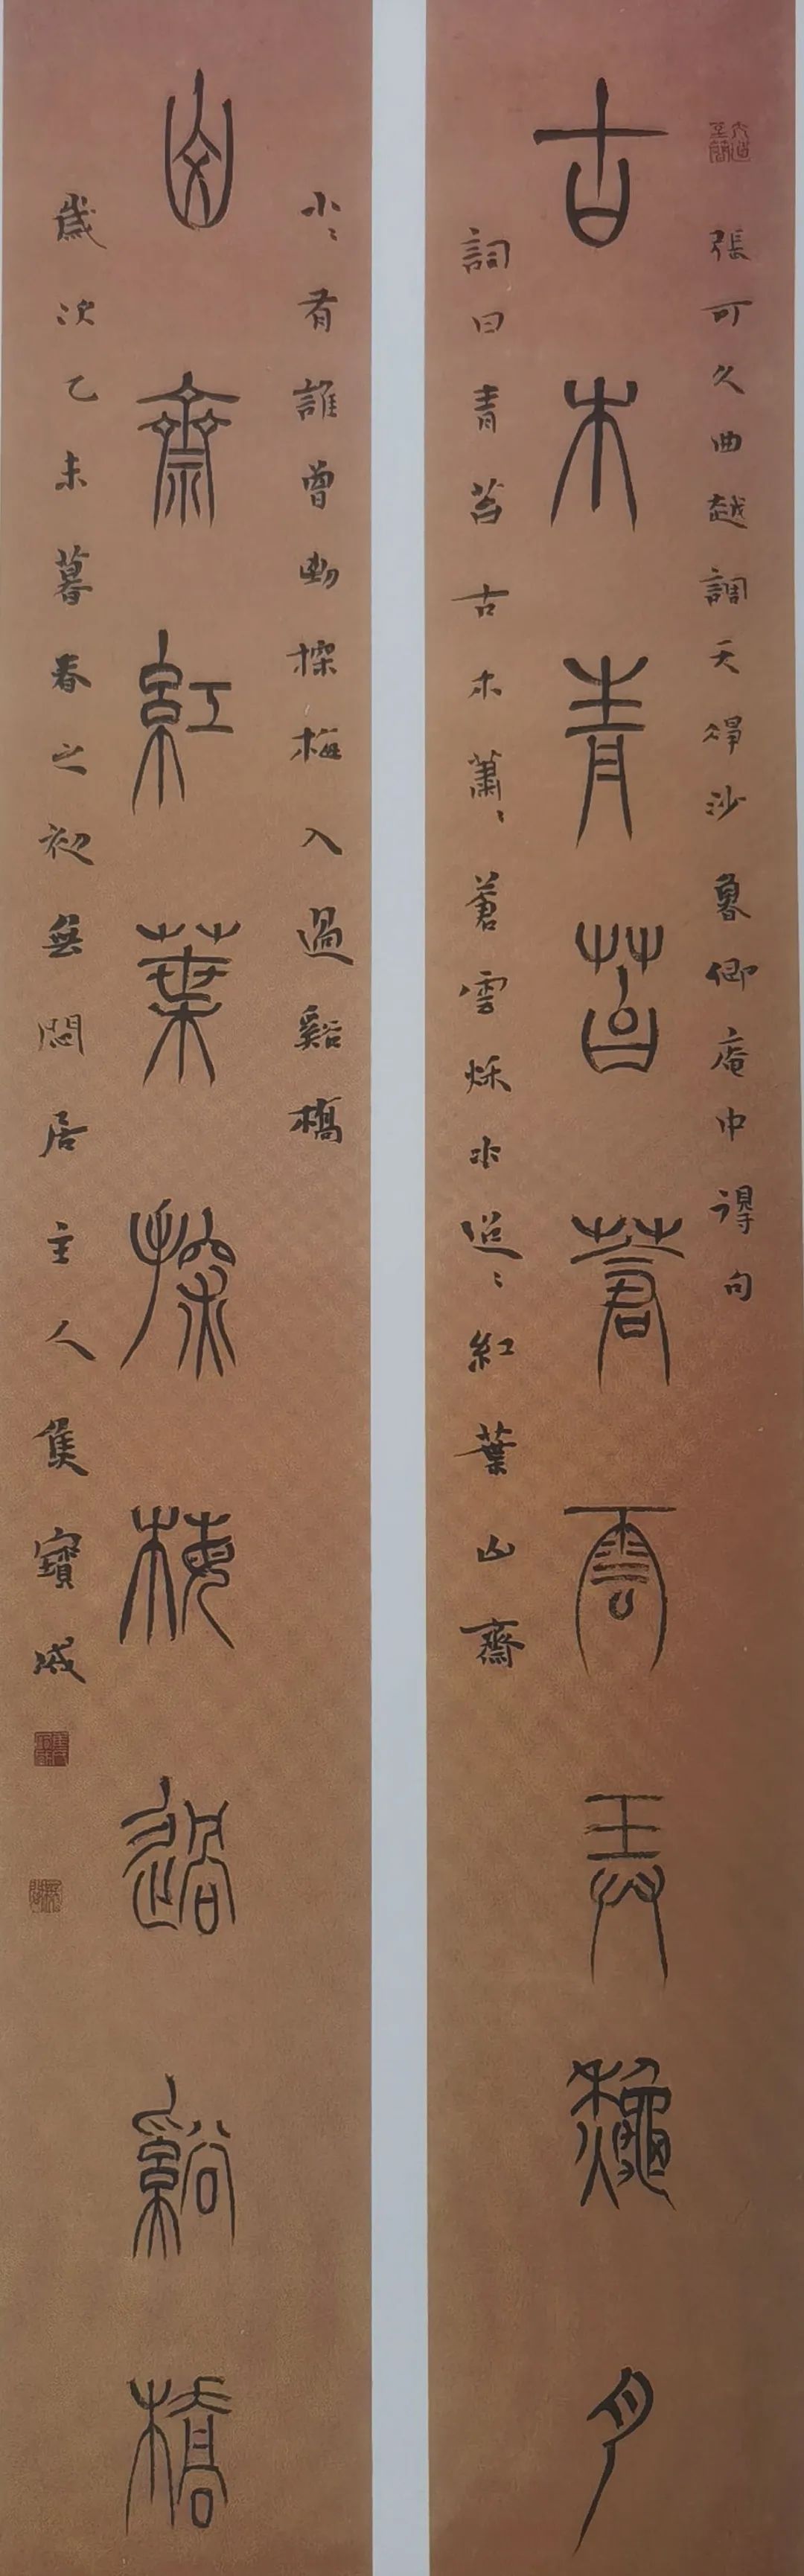 大道至簡
張可久曲越調天淨沙魯卿庵中得句
古木青苔蒼雲弄秋月
詞曰青苔古木蕭〻蒼雲秋水迢〻紅葉山齋
小〻有誰曾到探梅人過谿橋
山齋紅葉探梅過谿橋
歲次乙未暮春之初無悶居主人寶